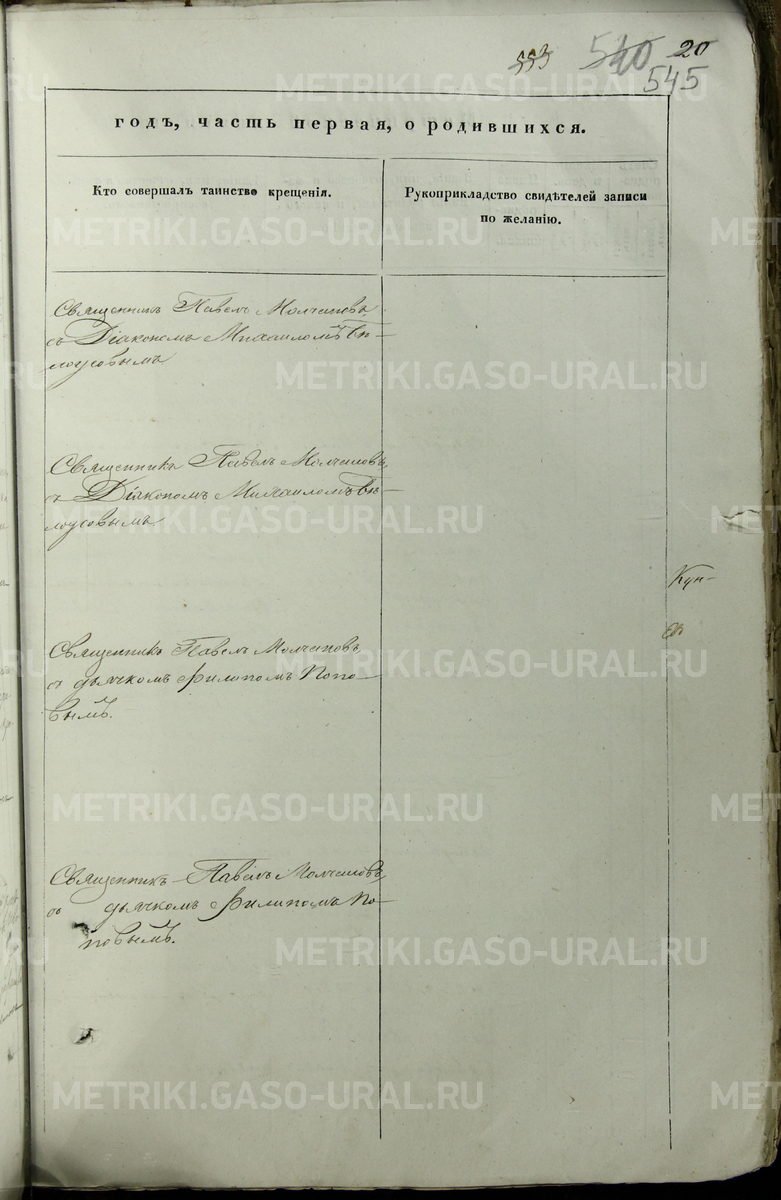 553 540 20
545
METRIKI.GASO-URAL.RU
годъ, часть первая, о родившихся.
Кто совершалъ таинство крещенія.
Рукоприкладство свидѣтелей записи
по желанію.
Священникъ Павелъ Молчановъ
съ Діакономъ Михаиломъ Бѣ-
лоусовымъ
Священникъ Павелъ Молчановъ,
съ Діакономъ Михаиломъ Бѣ-
лоусовымъ
Кун-
Священникъ Павелъ Молчановъ,
съ дьячкомъ Филипомъ Попо-
вымъ.
Священникъ Павелъ Молчановъ,
съ дьячкомъ Филипомъ По-
повымъ.